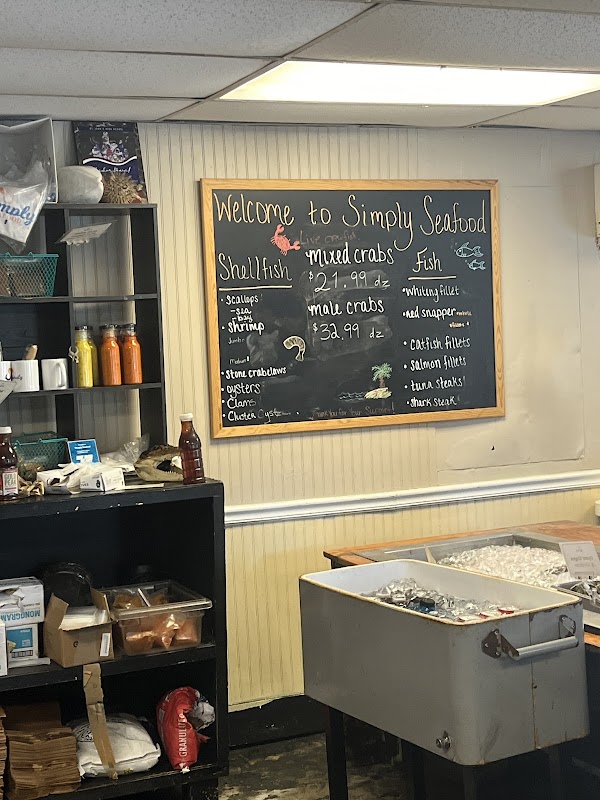 Welcome to Simply Seafood
Live crawfish
Shellfish
• Scallops
- sea
- bay
• Shrimp
Jumbo
Medium
• Stone crab claws
• oysters
• Clams
• Cluster Oyst
mixed crabs
$21.99 dz
male crabs
$32.99 dz
Thank you for Your Support!
Fish
• Whiting fillet
• Red snapper
• Catfish fillets
• Salmon fillets
• tuna steaks!
• Shark steak
MONOGRAM
GRANULATED